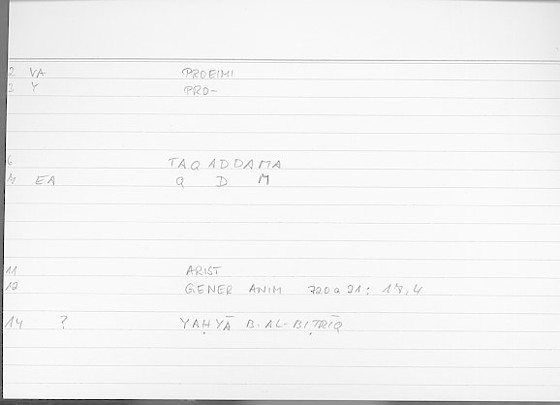 2 VA PROEIMI
3 Y PRO-
6 TAQADDAMA
7 EA Q D M
11 ARIST
12 GENER ANIM 720a21; 17,4
14 ? YAḤYĀ B. AL-BIṬRĪQ